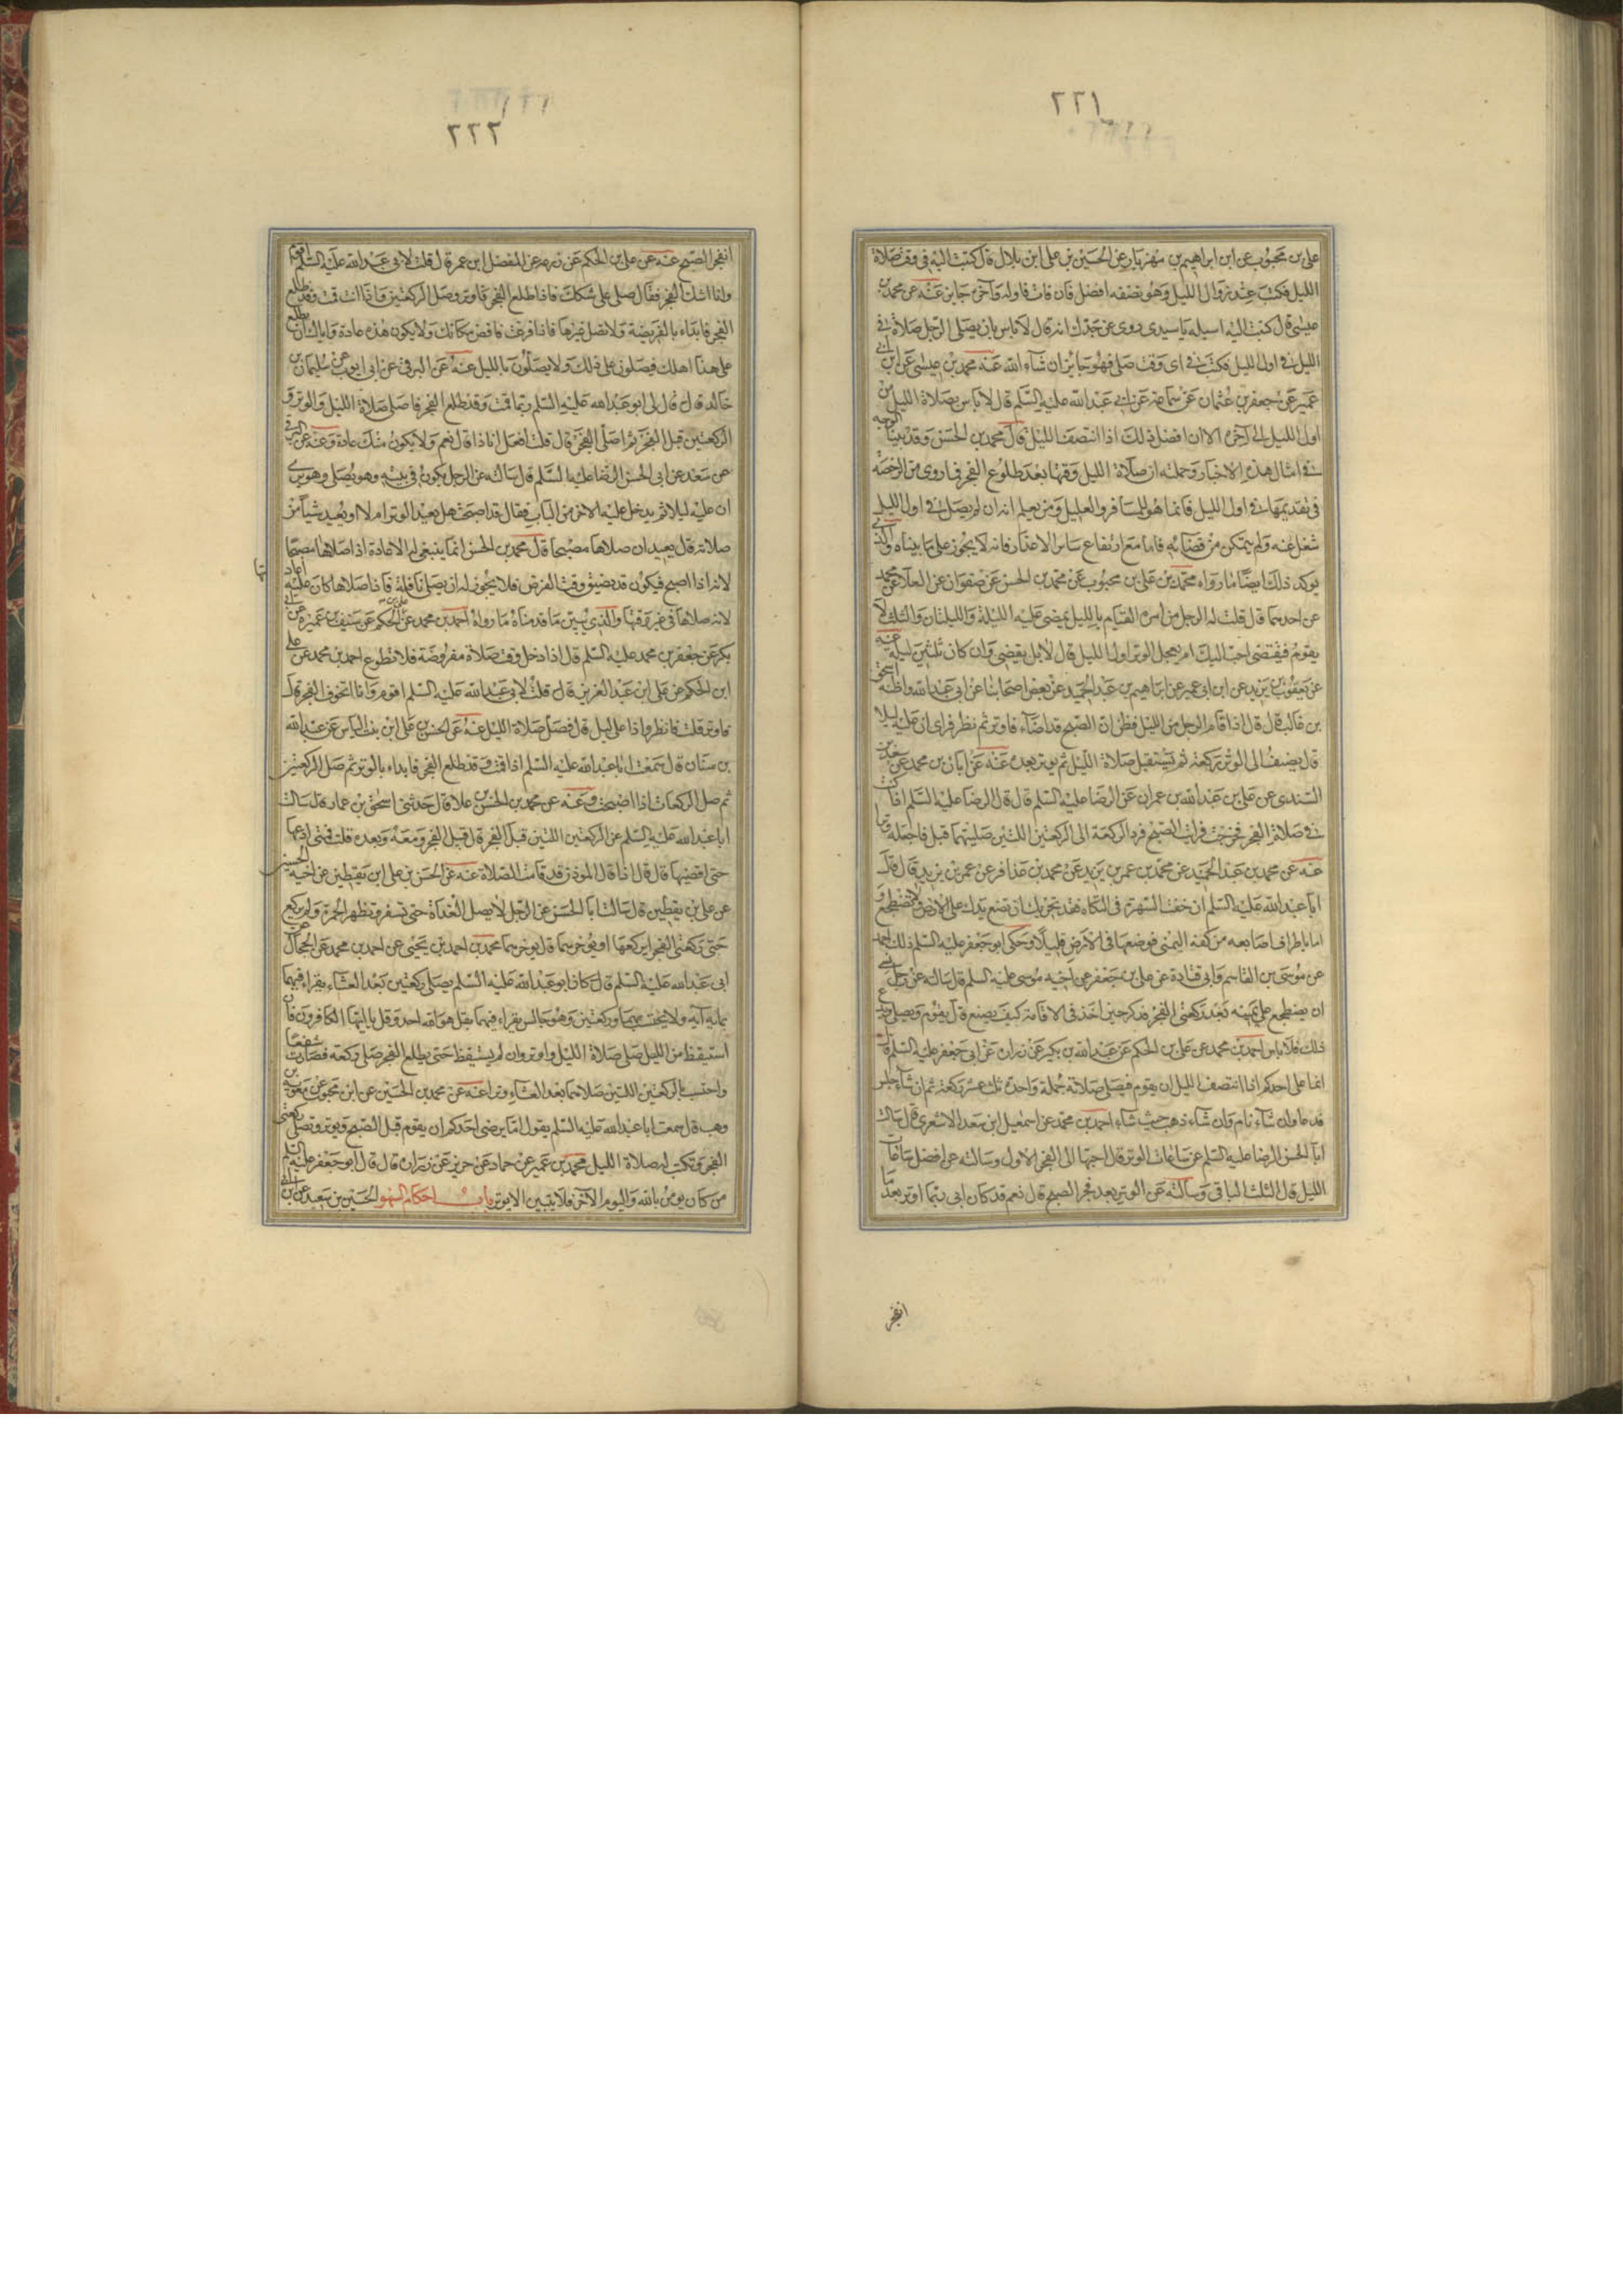 ٢٢١
علی بن محبوب عن ابن ابراهیم بن مهزیار عن الحسین بن علی ابن بلال قال کتبت الیه فی وقت صلاة
اللیل فکتب عند زوال اللیل وهو نصفه افضل فان فات فاوله وآخره جایز عنه عن محمد بن
عیسی قال کتبت الیه اسیله یا سیدی روی عن جدک انه قال لا باس بان یصلی الرجل صلاة
اللیل فی اول اللیل فکتب فی ای وقت صلی فهو جایز ان شاء الله عنه محمد بن عیسی عن ابن ابی
عمیر عن جعفر بن عثمان عن سماعة عن ابی عبدالله علیه السلم قال لا باس بصلاة اللیل من
اول اللیل الی آخره الا ان افضل ذلک اذا انتصف اللیل قال محمد بن الحسن وقد بینا الوجه
فی امثال هذه الاخبار وجملته ان صلاة اللیل وقتها بعد طلوع الفجر فما روی من الرخصة
فی تقدیمها فی اول اللیل فانما هو للمسافر والعلیل ومن یعلم انه ان لم یصل فی اول اللیل
شغل عنه ولم یتمکن من قضائه فاما مع ارتفاع سایر الاعذار فانه لا یجوز علی ما بیناه والذی
یوکد ذلک ایضا ما رواه محمد بن علی بن محبوب عن محمد بن الحسن عن صفوان عن العلا عن محمد
عن احدهما قال قلت له الرجل من امره القیام باللیل یمضی علیه اللیلة واللیلتان والثلث لا
یقوم فیقضی احب الیک ام یعجل الوتر اول اللیل قال لا بل یقضی وان کان ثلثین لیله عنه
عن یعقوب بن یزید عن ابن ابی عمیر عن ابراهیم بن عبد الحمید عن بعض اصحابنا عن ابی عبدالله واظنه اسحق
بن غالب قال قال اذا قام الرجل من اللیل فظن ان الصبح قد اضاء فاوتر ثم نظر فرای ان علیه لیلا
قال یضیف الی الوتر رکعة ثم یستقبل صلاة اللیل ثم یوتر بعده عنه عن ابان بن محمد عن سعد بن
السندی عن علی بن عبدالله بن عمران عن الرضا علیه السلم قال قال الرضا علیه السلم اذا کنت
فی صلاة الفجر فخرجت فرایت الصبح فرد الرکعة الی الرکعتین اللتین صلیتهما قبل فاجعله وترا
عنه عن محمد بن عبد الحمید عن محمد بن عمر بن یزید عن محمد بن عذافر عن عمر بن یزید قال قال
ابا عبدالله علیه السلم ان خفت الشهرة فی التکاه فقد یجزیک ان تضع یدک علی الارض ولا تضطجع و
اما باطراف اصابعه من کفه الیمنی فوضعها فی الارض قلیلا وحکی ابو جعفر علیه السلم ذلک احمد
عن موسی بن القاسم وابی قتادة عن علی بن جعفر عن اخیه موسی علیه السلم قال سالته عن رجل نسی
ان یضطجع علی یمینه بعد رکعتی الفجر فذکر حین اخذ فی الاقامة کیف یصنع قال یقوم ویصلی ویدع
ذلک فلا باس احمد بن محمد عن علی بن الحکم عن عبدالله بن بکیر عن زرارة عن ابی جعفر علیه السلم قال
انما علی احدکم اذا انتصف اللیل ان یقوم فیصلی صلاته جملة واحدة ثلث عشر رکعة ثم ان شاء جلس
فدعا وان شاء نام وان شاء ذهب حیث شاء احمد بن محمد عن اسمعیل ابن سعد الاشعری قال سالت
ابا الحسن الرضا علیه السلم عن ساعات الوتر قال احبها الی الفجر الاول وسالته عن افضل ساعات
اللیل قال الثلث الباقی وسالته عن الوتر بعد فجر الصبح قال نعم قد کان ابی ربما اوتر بعد ما
انفجر
٢٢٢
انفجر الصبح عنه عن علی بن الحکم عن زرعه عن المفضل ابن عمر قال قلت لابی عبدالله علیه السلم اقوم
وانا اشک الفجر فقال صلی علی شکک فاذا طلع الفجر فاوتر وصل الرکعتین واذا انت قمت وقد طلع
الفجر فابداء بالفریضة ولا تصل غیرها فاذا فرغت فاقض مکانک ولا یکون هذه عادة وایاک ان یطلع
علی هذا اهلک فیصلون علی ذلک ولا یصلون باللیل عنه عن البرقی عن ابی ایوب عن سلیمان بن
خالد قال قال لی ابو عبدالله علیه السلم ربما قمت وقد طلع الفجر فاصلی صلاة اللیل والوتر و
الرکعتین قبل الفجر ثم اصلی الفجر قال قلت افعل انا ذا قال نعم ولا یکون منک عادة وعنه عن البرقی
عن سعد عن ابی الحسن الرضا علیه السلم قال سالته عن الرجل یکون فی بیته وهو یصلی وهو یری
ان علیه لیلا ثم یدخل علیه الاخر من الباب فقال قد اصبحت هل یعید الوتر ام لا او یعید شیأ من
صلاته قال یعید ان صلاها مصبحا قال محمد بن الحسن انما ینبغی له الاعادة اذا صلاها مصبحا
لانه اذا اصبح فیکون قد یضیق وقت الفرض فلا یجوز له ان یصلی نافلة فاذا صلاها کان علیه اعاد
تها
لانه صلاها فی غیر وقتها والذی یبین ما قدمناه ما رواه احمد بن محمد عن علی بن الحکم عن سیف بن عمیرة عن ابی
بکر عن جعفر بن محمد علیه السلم قال اذا دخل وقت صلاة مفروضة فلا تطوع احمد بن محمد عن علی
ابن الحکم عن علی ابن عبد العزیز قال قلت لابی عبدالله علیه السلم اقوم وانا اتخوف الفجر قال
فاوتر قلت فانظر واذا علی لیل قال فصل صلاة اللیل عنه عن الحسن بن علی ابن بنت الیاس عن عبدالله
بن سنان قال سمعت ابا عبدالله علیه السلم اذا قمت وقد طلع الفجر فابداء بالوتر ثم صل الرکعتین
ثم صل الرکعات اذا اصبحت وعنه عن محمد بن الحسن بن علا قال حدثنی اسحق بن عمار قال سالت
ابا عبدالله علیه السلم عن الرکعتین اللتین قبل الفجر قال قبل الفجر ومعه وبعده قلت فمتی ادعها
حتی اقضیها قال قال اذا قال الموذن قد قامت الصلاة عنه عن الحسن بن علی ابن یقطین عن اخیه الحسین
عن علی بن یقطین قال سالت ابا الحسن عن الرجل لا یصل الغداة حتی تسفر وتظهر الحمرة ولم یرکع
حتی رکعتی الفجر ایرکعها او یؤخرهما قال یوخرهما محمد بن احمد بن یحیی عن احمد بن محمد عن الحجال عن
ابی عبدالله علیه السلم قال کان ابو عبدالله علیه السلم یصلی رکعتین بعد العشاء یقراء فیهما
بمایه آیه ولا یحتسب بهما ورکعتین وهو جالس یقراء فیهما بقل هو الله احد وقل یا ایها الکافرون فان
استیقظ من اللیل صلی صلاة اللیل واوتر وان لم یستیقظ حتی یطلع الفجر صلی رکعة فصارت شفعا
واحتسب بالرکعتین اللتین صلاهما بعد العشاء وترا عنه عن محمد بن الحسین عن ابن محبوب عن معویة بن
وهب قال سمعت ابا عبدالله علیه السلم یقول اما یرضی احدکم ان یقوم قبل الصبح ویوتر ویصلی رکعتی
الفجر وتکتب له صلاة اللیل محمد بن عمیر عن حماد عن حریز عن زرارة قال قال ابو جعفر علیه السلم
من کان یومن بالله والیوم الآخر فلا یبیتن الا بوتر باب احکام السهو الحسین بن سعید عن ابن ابی